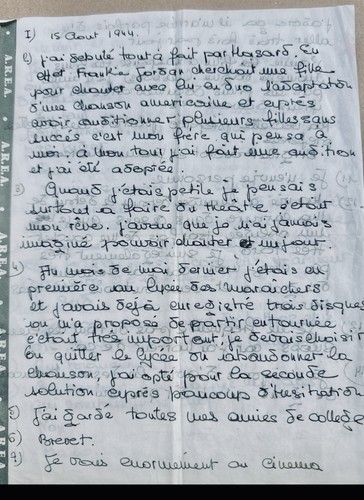 1) 15 Aout 1944.
2) j'ai debuté tout à fait par Hasard. En
effet. Frankie Jordan cherchait une fille
pour chanter avec lui en duo l'adaptation
d'une chanson americaine et après
avoir auditionner plusieurs filles sans
succès c'est mon frère qui pensa à
moi. à mon tour j'ai fait une audition
et j'ai été adoptée.
3) Quand j'étais petite je pensais
surtout à faire du théâtre c'était
mon rêve. j'avoue que je n'ai jamais
imaginé pouvoir chanter un jour.
4) Au mois de mai dernier j'étais en
première au lycée des maraichers
et j'avais dejà enregistré trois disques
on m'a proposé de partir en tournée
c'était très important, je devais choisir
ou quitter le lycée ou abandonner la
chanson, j'ai opté pour la seconde
solution après beaucoup d'hésitation
5) J'ai gardé toutes mes amies de collège
6) Brevet.
7) Je vais enormement au cinema
A.R.E.A.
A.R.E.A.
A.R.E.A.
A.R.E.A.
A.R.E.A.
A.R.E.A.